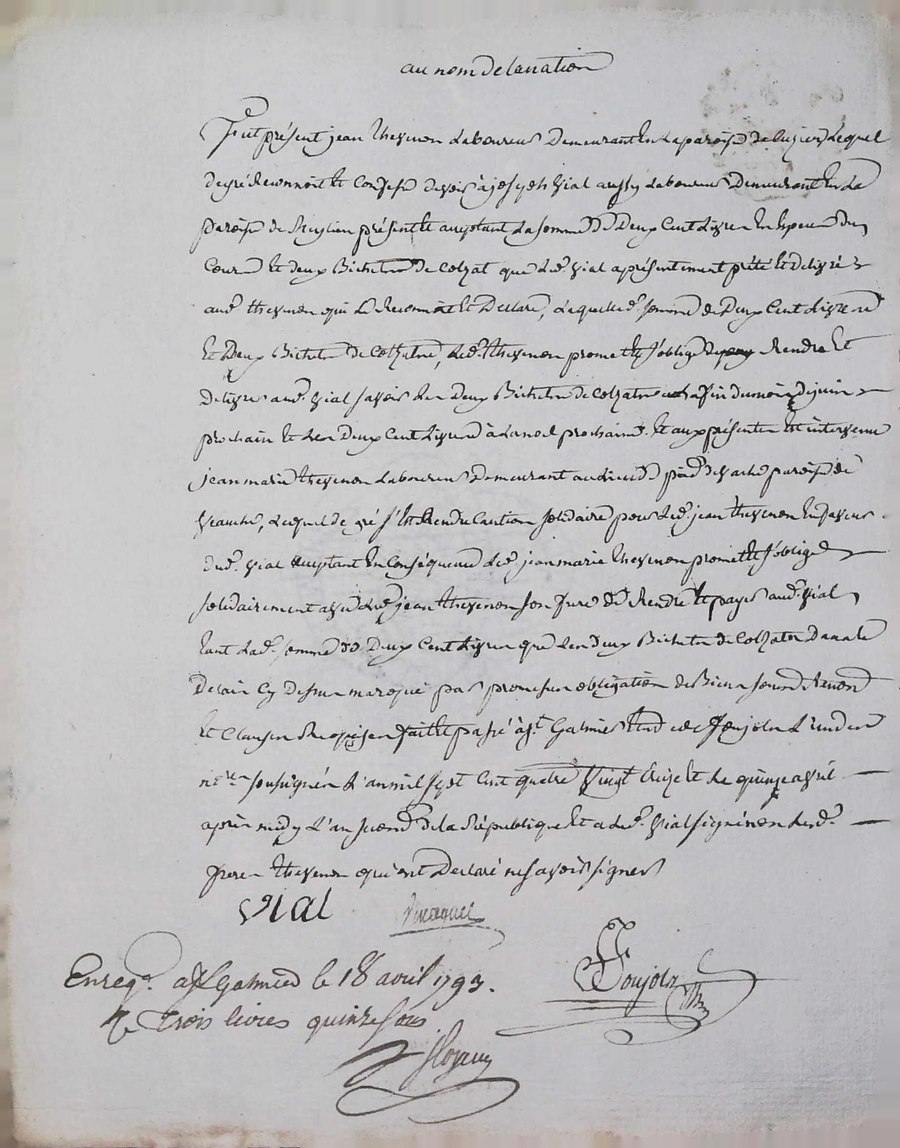 au nom de la nation
Fut présent jean thevenon Laboureur Demeurant En La paroisse de Luzier Lequel
de gré Reconnoit Et Confesse devoir à joseph Vial aussy Laboureur Demeurant En La
paroisse de present Et aceptant La somme De Deux Cent Livres En Especes du
Cours Et deux Bichets De Colzat que Led. Vial a présentement prété Et délivré
aud. thevenon qui Le Reconnoit Et Declare, Laquelle d. somme de Deux Cent Livres
Et Deux Bichets De Colzat Led. thevenon promet Et s'oblige Rendre Et
Delivrer aud. Vial savoir Les Deux Bichets De Colzat a La fin du mois De juin
prochain Et Les Deux Cent Livres à La noel prochaine Et aux présentes Est intervenu
jean marie thevenon Laboureur Demeurant au Lieu De paroisse de
Lequel de gré s'est Rendu Caution solidaire pour Led. jean thevenon En faveur
dud. Vial aceptant En Conséquence Led. jean marie thevenon promet Et s'oblige
solidairement avec Led. jean thevenon son frere De Rendre Et payer aud. Vial
tant Lad. somme De Deux Cent Livres que Les Deux Bichets de Colzat Dans Le
Delai Cy Dessus marqué par promesse obligation de Biens
Et Clauses Requises fait Et passé à St. Galmier Etude de Poujola L'un des
nres. soussignés L'an mil sept Cent quatre Vingt treize Et Le quinze avril
après midy L'an second de la République Et a Led. Vial signé non Lesd.
freres thevenon qui ont Declaré ne savoir signer
Vial
Poujola
Enreg. a St Galmier le 18 avril 1793.
R. Trois livres quinze sous